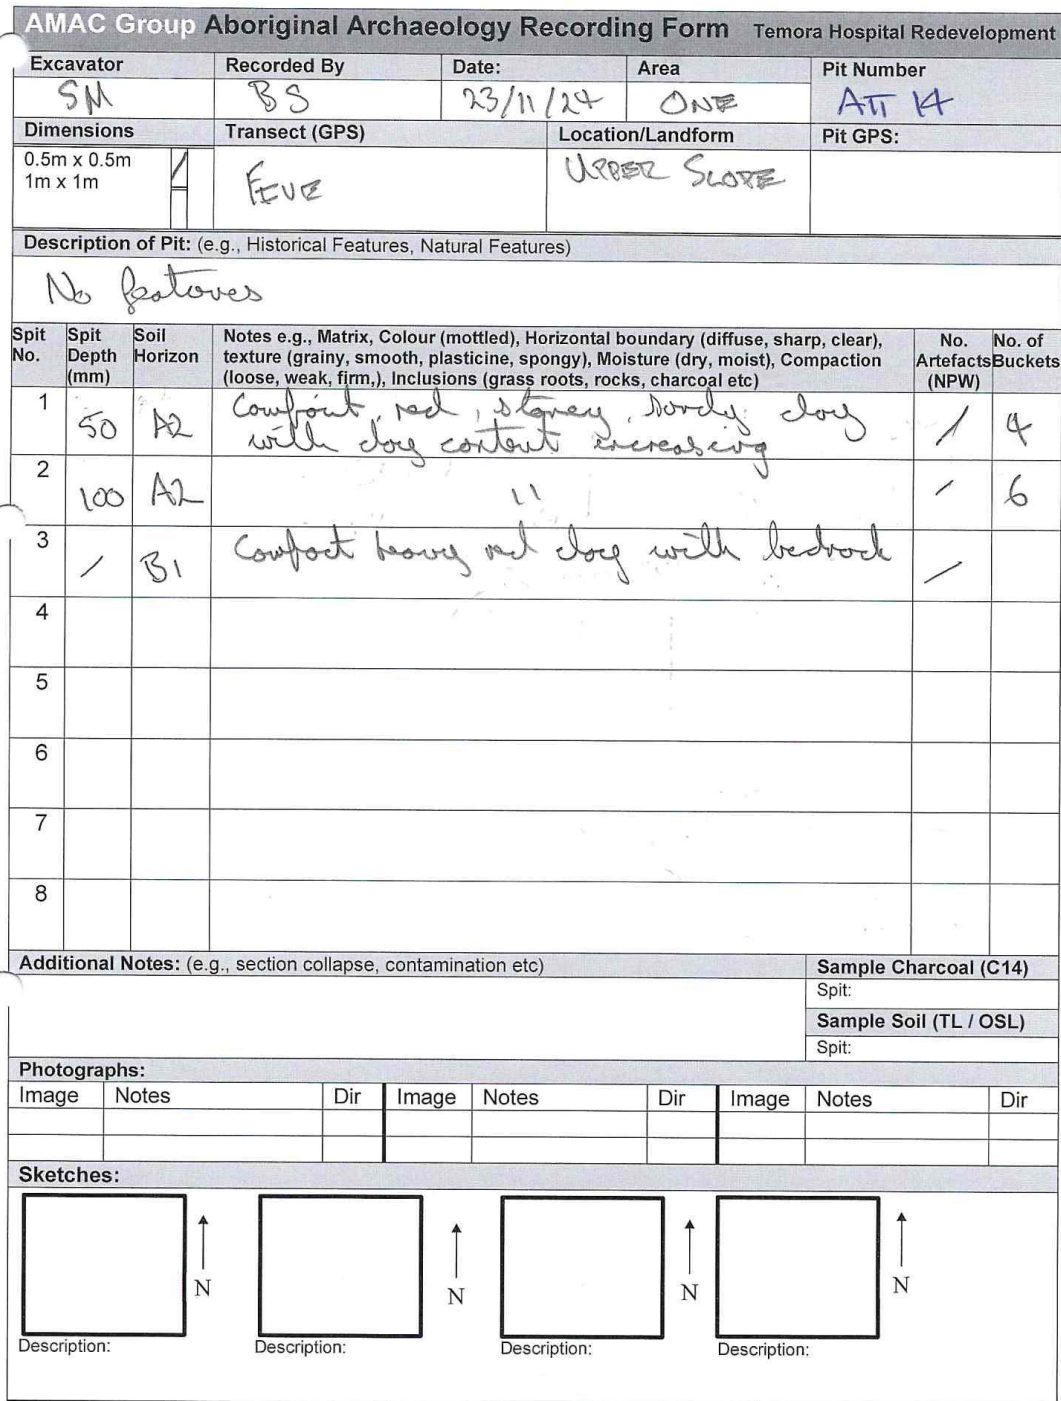 AMAC Group Aboriginal Archaeology Recording Form Temora Hospital Redevelopment
Excavator Recorded By Date: Area Pit Number
SM BS 23/11/24 ONE ATT 14
Dimensions Transect (GPS) Location/Landform Pit GPS:
0.5m x 0.5m /
1m x 1m
FIVE UPPER SLOPE
Description of Pit: (e.g., Historical Features, Natural Features)
No features
Spit No. Spit Depth (mm) Soil Horizon Notes e.g., Matrix, Colour (mottled), Horizontal boundary (diffuse, sharp, clear), texture (grainy, smooth, plasticine, spongy), Moisture (dry, moist), Compaction (loose, weak, firm,), Inclusions (grass roots, rocks, charcoal etc) No. Artefacts (NPW) No. of Buckets
1 50 A2 Compact, red, stoney, sandy clay / 4
with clay content increasing
2 100 A2 11 / 6
3 / B1 Compact heavy red clay with bedrock /
4
5
6
7
8
Additional Notes: (e.g., section collapse, contamination etc) Sample Charcoal (C14)
Spit:
Sample Soil (TL / OSL)
Spit:
Photographs:
Image Notes Dir Image Notes Dir Image Notes Dir
Sketches:
N N N N
Description: Description: Description: Description: